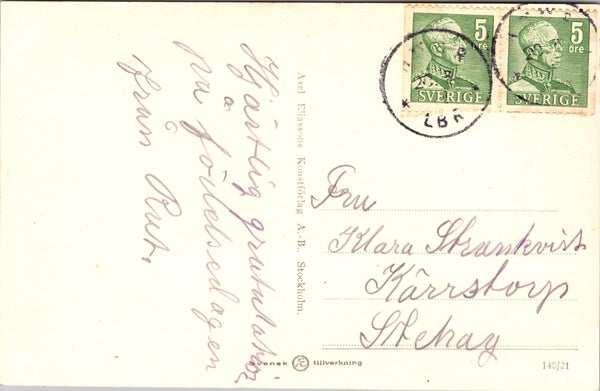 Hjärtlig gratulation
på födelsedagen
från Rut.
Axel Eliassons Konstförlag A.-B., Stockholm.
5
öre
SVERIGE
5
öre
SVERIGE
LBR
Fru
Klara Strankvist
Kärrstorp
Stehag
Svensk tillverkning
140/21